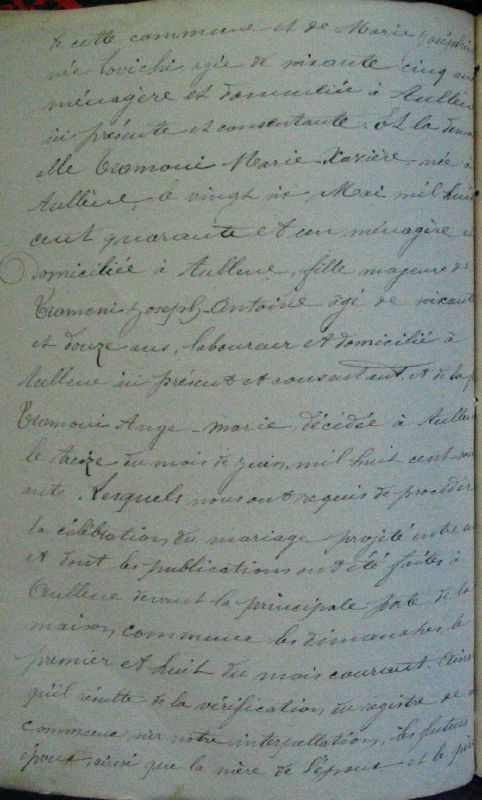 de cette commune et de Marie Joséphine
née Lovichi agée de soixante cinq ans
ménagère et domiciliée à Aullène
ici présente et consentante. Et la demoi
elle Tramoni Marie Xavière, née à
Aullène le vingt six Mai mil huit
cent quarante et un ménagère et
domiciliée à Aullene, fille majeure de
Tramoni Joseph-Antoine âgé de soixante
et douze ans, laboureur et domicilié à
Aullene ici présent et consentant, et de la
Tramoni Ange-marie, décédée à Aullene
le treize du mois de Juin, mil huit cent soix
ante. Lesquels nous ont requis de procéder
la célébration du mariage projeté entre eux
et dont les publications ont été faites à
Aullene devant la principale porte de la
maison commune les dimanches, le
premier et huit du mois courant.
qu'il résulte de la vérification du registre de
commune, sur notre interpellation, les futurs
époux, ainsi que la mère de l'époux et le père